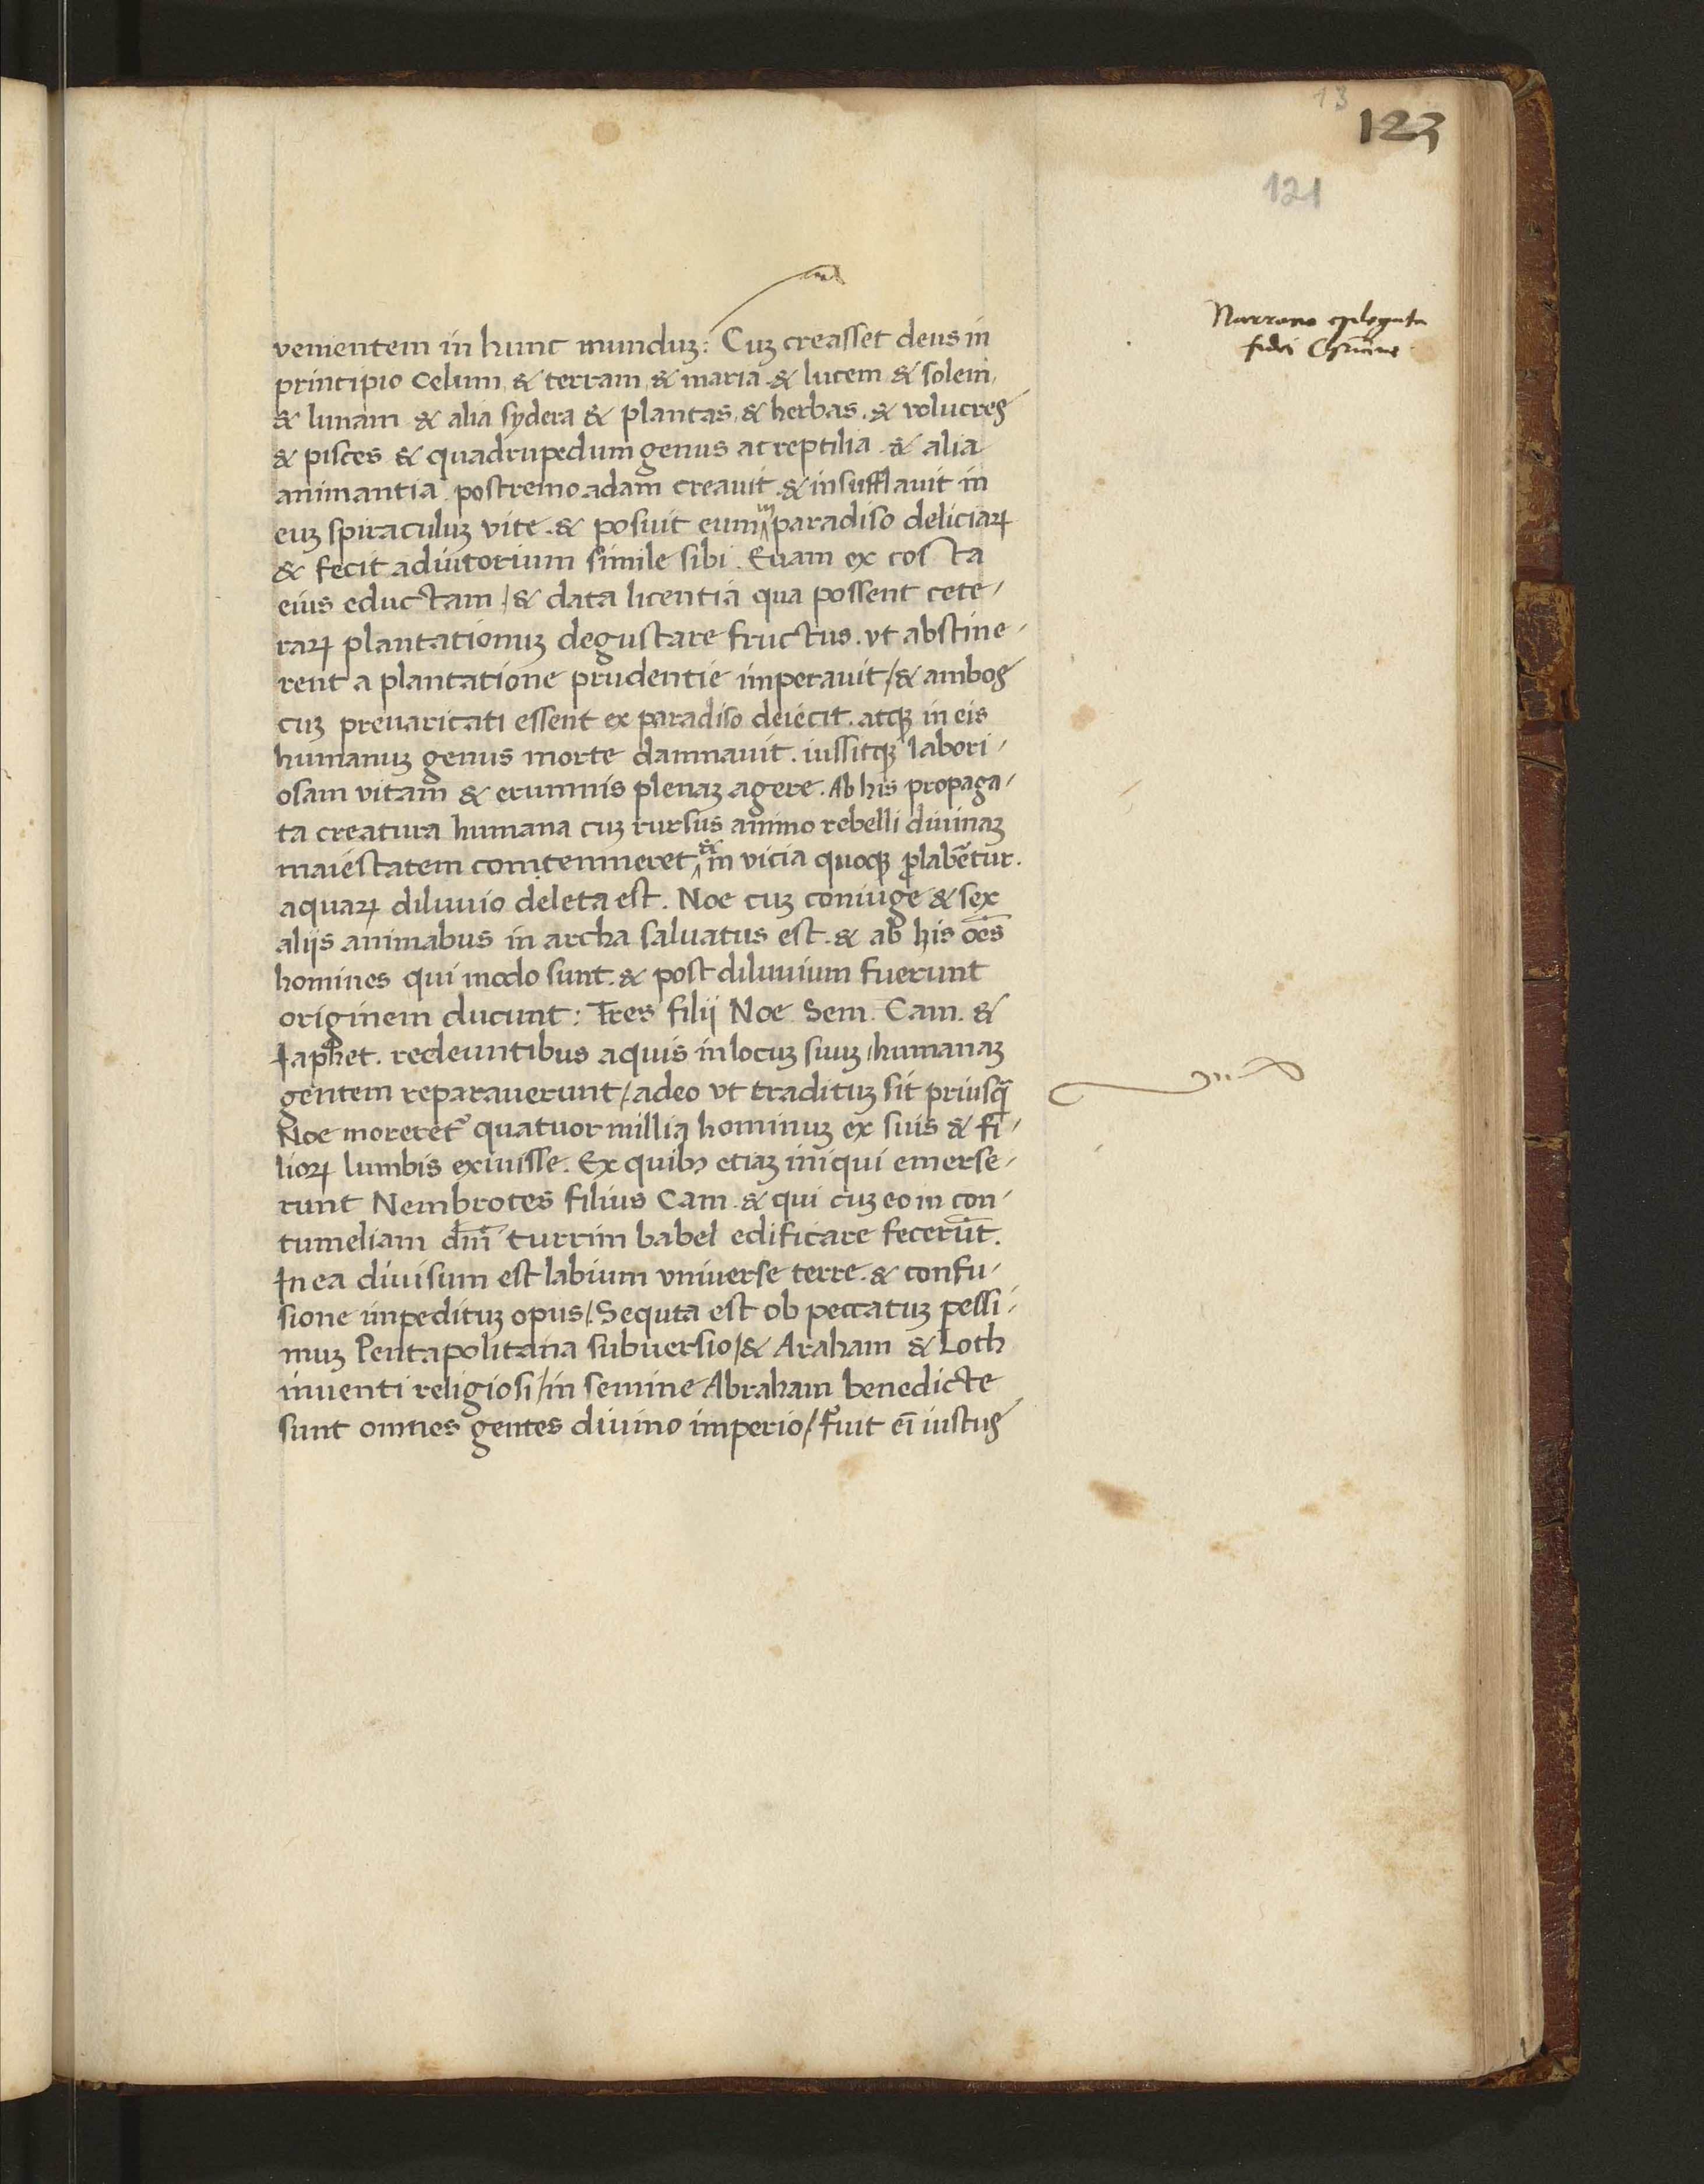 13
123
121
Narratio epilogata
fidei Christiane
venientem in hunc munduꝫ: Cuꝫ creasset deus in
principio Celum, & terram, & maria & lucem & solem,
& lunam & alia sydera & plantas, & herbas. & volucres
& pisces & quadrupedum genus ac reptilia. & alia
animantia. postremo adam creauit. & insufflauit in
euꝫ spiraculuꝫ vite. & posuit eum in paradiso deliciaꝝ
& fecit adiutorium simile sibi. Euam ex costa
eius eductam / & data licentia qua possent cete-
raꝝ plantationuꝫ degustare fructus. vt abstine-
rent a plantatione prudentie imperauit / & ambos
cuꝫ preuaricati essent ex paradiso deiecit. atqꝫ in eis
humanuꝫ genus morte damnauit. iussitqꝫ labori-
osam vitam & erumnis plenaꝫ agere. Ab his propaga-
ta creatura humana cuꝫ rursus animo rebelli diuinaꝫ
maiestatem comtemneret & in vicia quoqꝫ ꝓlaberẽtur.
aquaꝝ diluuio deleta est. Noe cuꝫ coniuge & sex
aliis animabus in archa saluatus est. & ab his oẽs
homines qui modo sunt. & post diluuium fuerunt
originem ducunt: Tres filii Noe Sem. Cam. &
Iaphet. redeuntibus aquis in locuꝫ suuꝫ / humanaꝫ
gentem reparauerunt / adeo vt tradituꝫ sit priusq̃
Noe moreret᷑ quatuor millia hominuꝫ ex suis & fi-
lioꝝ lumbis exiuisse. Ex quibꝫ etiaꝫ iniqui emerse-
runt Nembrotes filius Cam. & qui cuꝫ eo in con-
tumeliam dm̃ turrim babel edificare fecerũt.
In ea diuisum est labium vniuerse terre. & confu-
sione impedituꝫ opus / Sequta est ob peccatuꝫ pessi-
muꝫ Pentapolitana subuersio / & Araham & Loth
inuenti religiosi / in semine Abraham benedicte
sunt omnes gentes diuino imperio / Fuit eĩ iustus